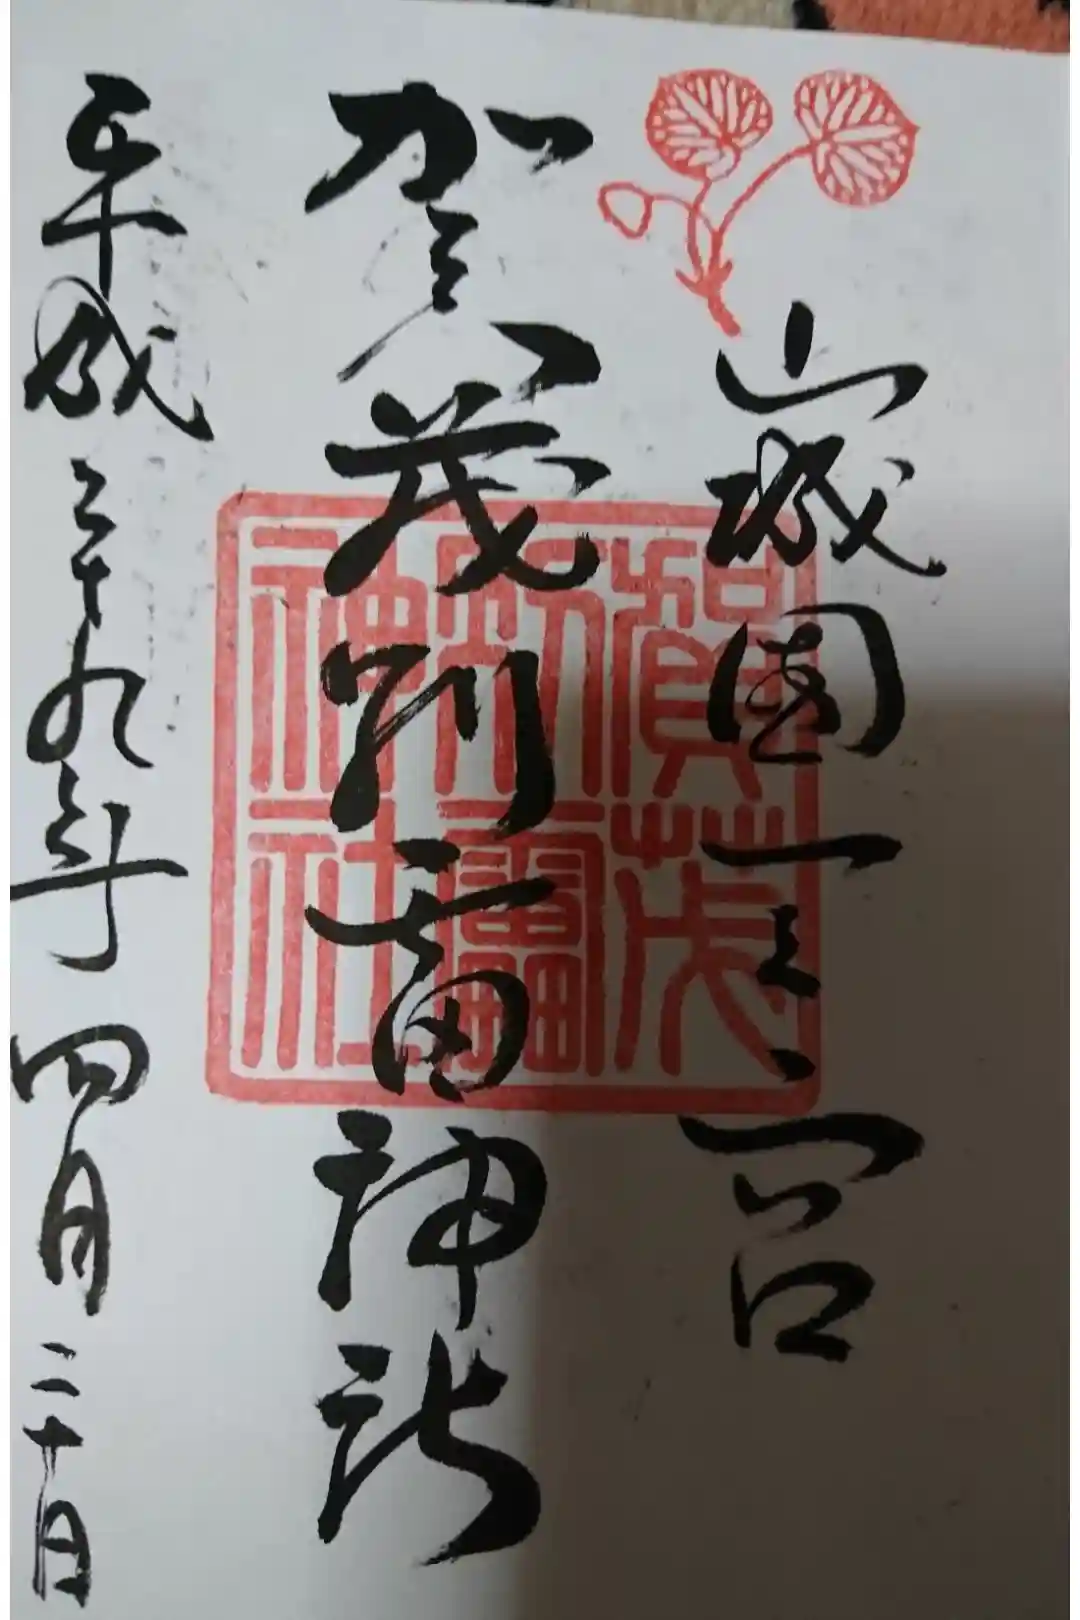 山城國一之宮
賀茂別雷神社
平成二十九年四月二十日
賀茂
別雷
神社